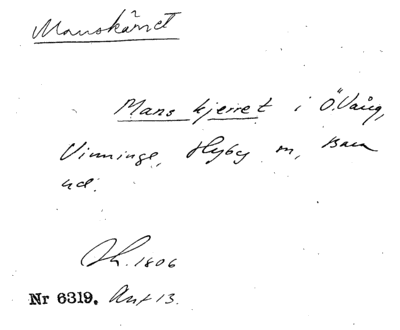 Manskärret
Mans kjerret i Ö. Vång,
Vinninge, Hyby m, Bara
hd.
Sk. 1806
Nr 6319. Ant 13.